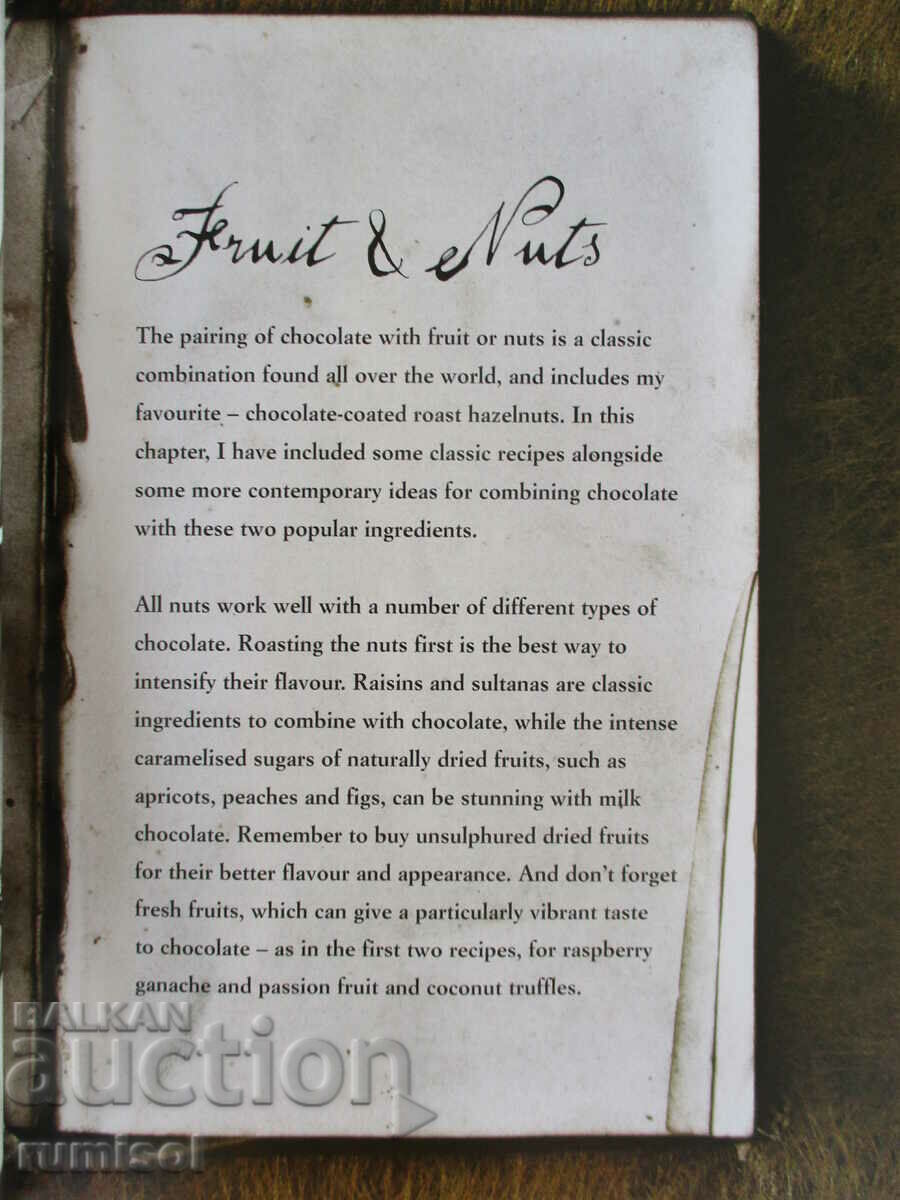 Fruit & Nuts
The pairing of chocolate with fruit or nuts is a classic
combination found all over the world, and includes my
favourite – chocolate-coated roast hazelnuts. In this
chapter, I have included some classic recipes alongside
some more contemporary ideas for combining chocolate
with these two popular ingredients.
All nuts work well with a number of different types of
chocolate. Roasting the nuts first is the best way to
intensify their flavour. Raisins and sultanas are classic
ingredients to combine with chocolate, while the intense
caramelised sugars of naturally dried fruits, such as
apricots, peaches and figs, can be stunning with milk
chocolate. Remember to buy unsulphured dried fruits
for their better flavour and appearance. And don't forget
fresh fruits, which can give a particularly vibrant taste
to chocolate – as in the first two recipes, for raspberry
ganache and passion fruit and coconut truffles.
BALKAN
auction
rumisol